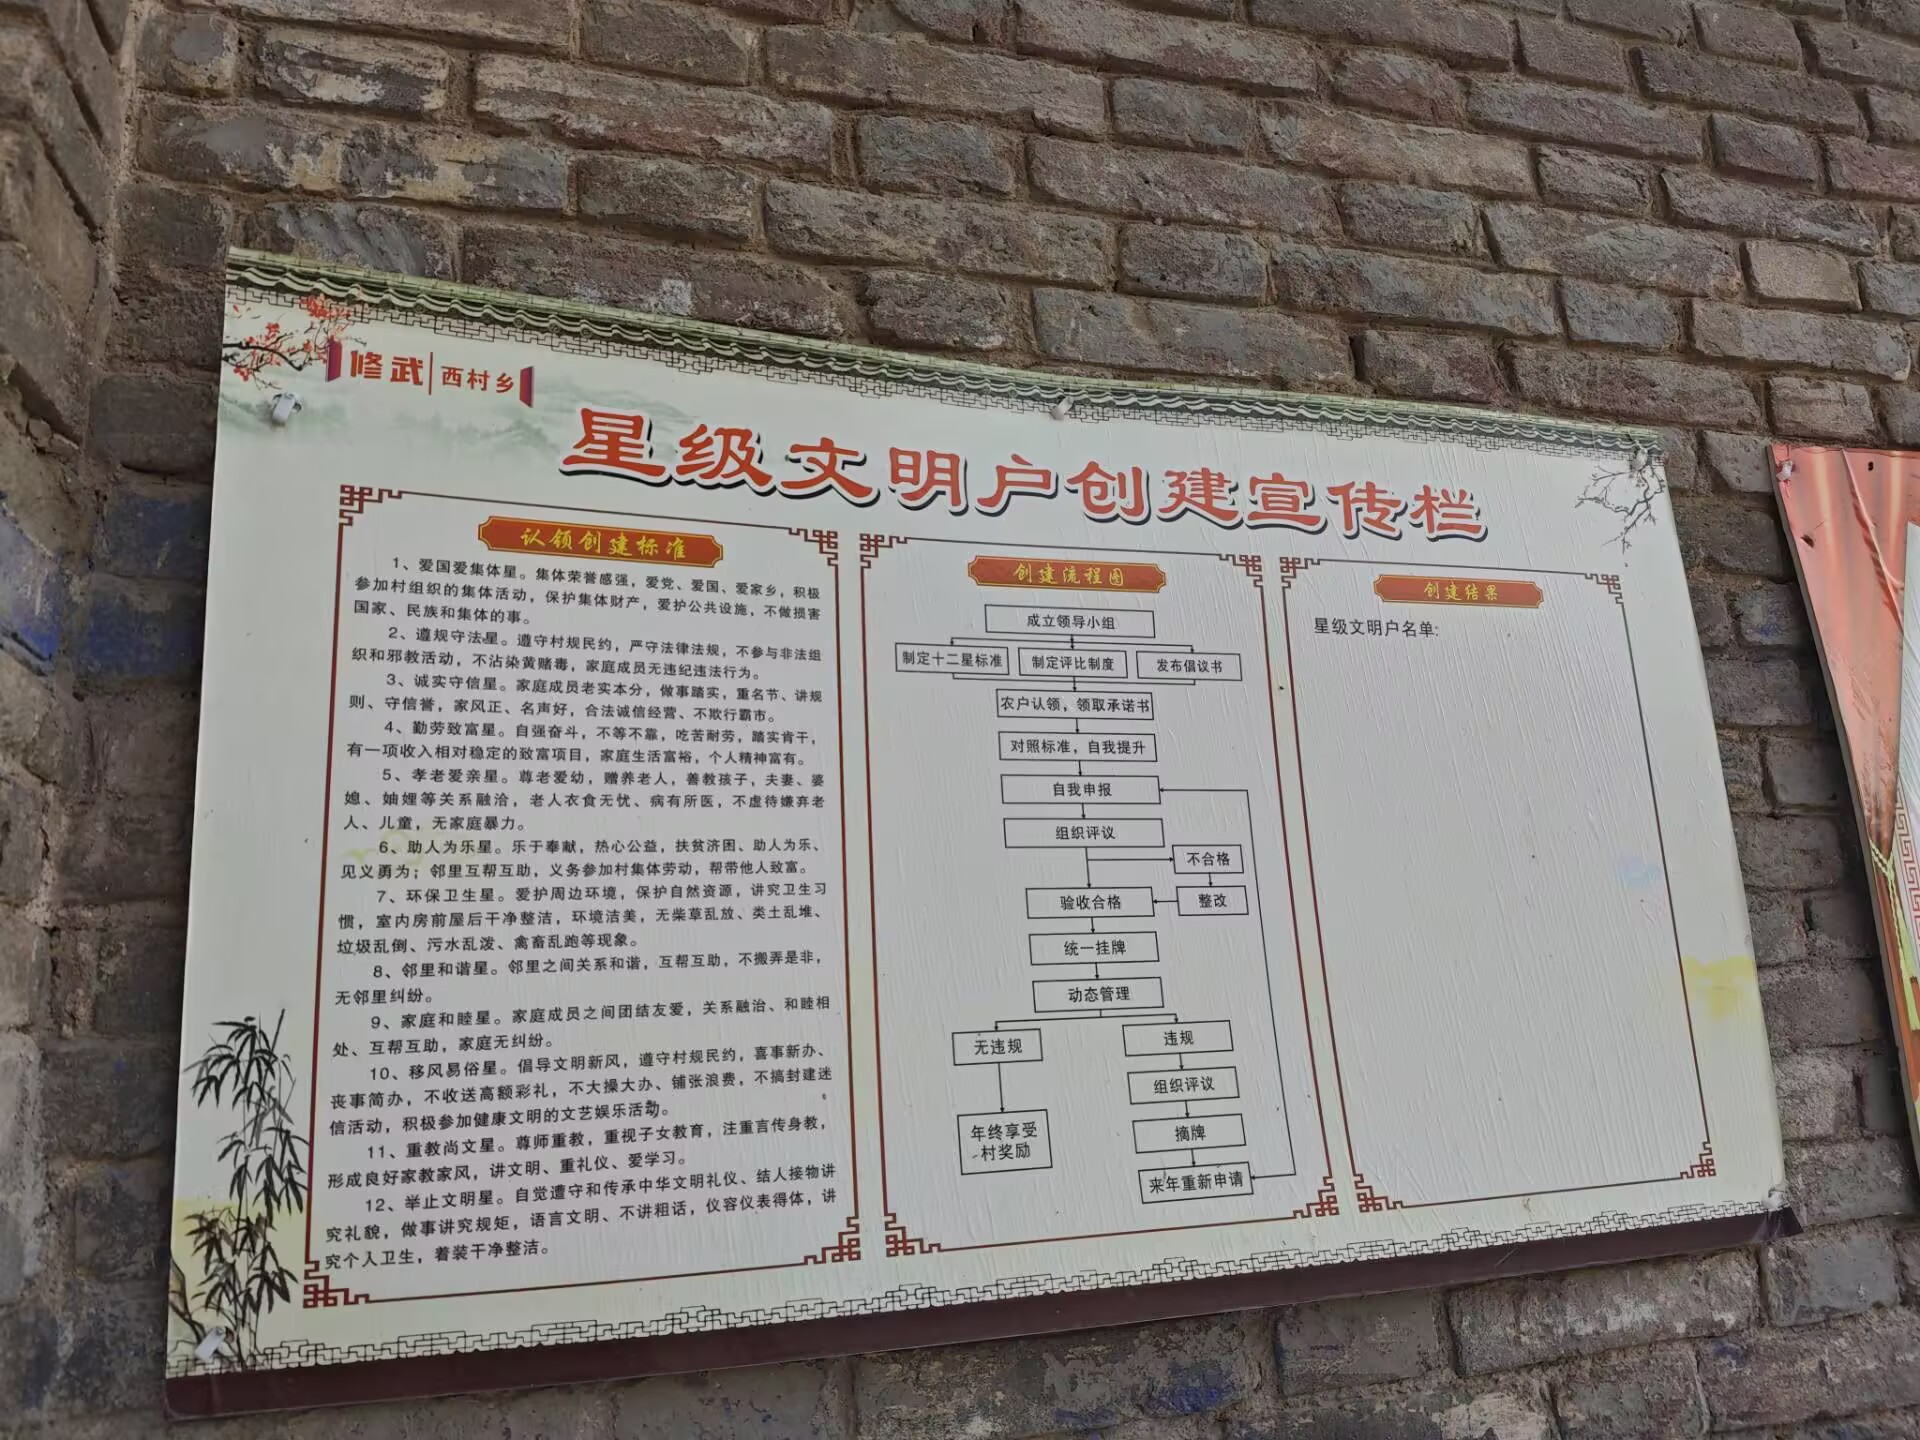 修武 西村乡
星级文明户创建宣传栏
认领创建标准
1、爱国爱集体星。集体荣誉感强，爱党、爱国、爱家乡，积极
参加村组织的集体活动，保护集体财产，爱护公共设施，不做损害
国家、民族和集体的事。
2、遵规守法星。遵守村规民约，严守法律法规，不参与非法组
织和邪教活动，不沾染黄赌毒，家庭成员无违纪违法行为。
3、诚实守信星。家庭成员老实本分，做事踏实，重名节、讲规
则、守信誉，家风正、名声好，合法诚信经营、不欺行霸市。
4、勤劳致富星。自强奋斗，不等不靠，吃苦耐劳，踏实肯干，
有一项收入相对稳定的致富项目，家庭生活富裕，个人精神富有。
5、孝老爱亲星。尊老爱幼，赠养老人，善教孩子，夫妻、婆
媳、妯娌等关系融洽，老人衣食无忧、病有所医，不虚待嫌弃老
人、儿童，无家庭暴力。
6、助人为乐星。乐于奉献，热心公益，扶贫济困、助人为乐、
见义勇为；邻里互帮互助，义务参加村集体劳动，帮带他人致富。
7、环保卫生星。爱护周边环境，保护自然资源，讲究卫生习
惯，室内房前屋后干净整洁，环境洁美，无柴草乱放、类土乱堆、
垃圾乱倒、污水乱泼、禽畜乱跑等现象。
8、邻里和谐星。邻里之间关系和谐，互帮互助，不搬弄是非，
无邻里纠纷。
9、家庭和睦星。家庭成员之间团结友爱，关系融治、和睦相
处、互帮互助，家庭无纠纷。
10、移风易俗星。倡导文明新风，遵守村规民约，喜事新办、
丧事简办，不收送高额彩礼，不大操大办、铺张浪费，不搞封建迷
信活动，积极参加健康文明的文艺娱乐活动。
11、重教尚文星。尊师重教，重视子女教育，注重言传身教，
形成良好家教家风，讲文明、重礼仪、爱学习。
12、举止文明星。自觉遵守和传承中华文明礼仪、结人接物讲
究礼貌，做事讲究规矩，语言文明、不讲粗话，仪容仪表得体，讲
究个人卫生，着装干净整洁。
创建流程图
成立领导小组
制定十二星标准 制定评比制度 发布倡议书
农户认领，领取承诺书
对照标准，自我提升
自我申报
组织评议
不合格
验收合格 整改
统一挂牌
动态管理
无违规 违规
组织评议
年终享受
村奖励
摘牌
来年重新申请
创建结果
星级文明户名单: